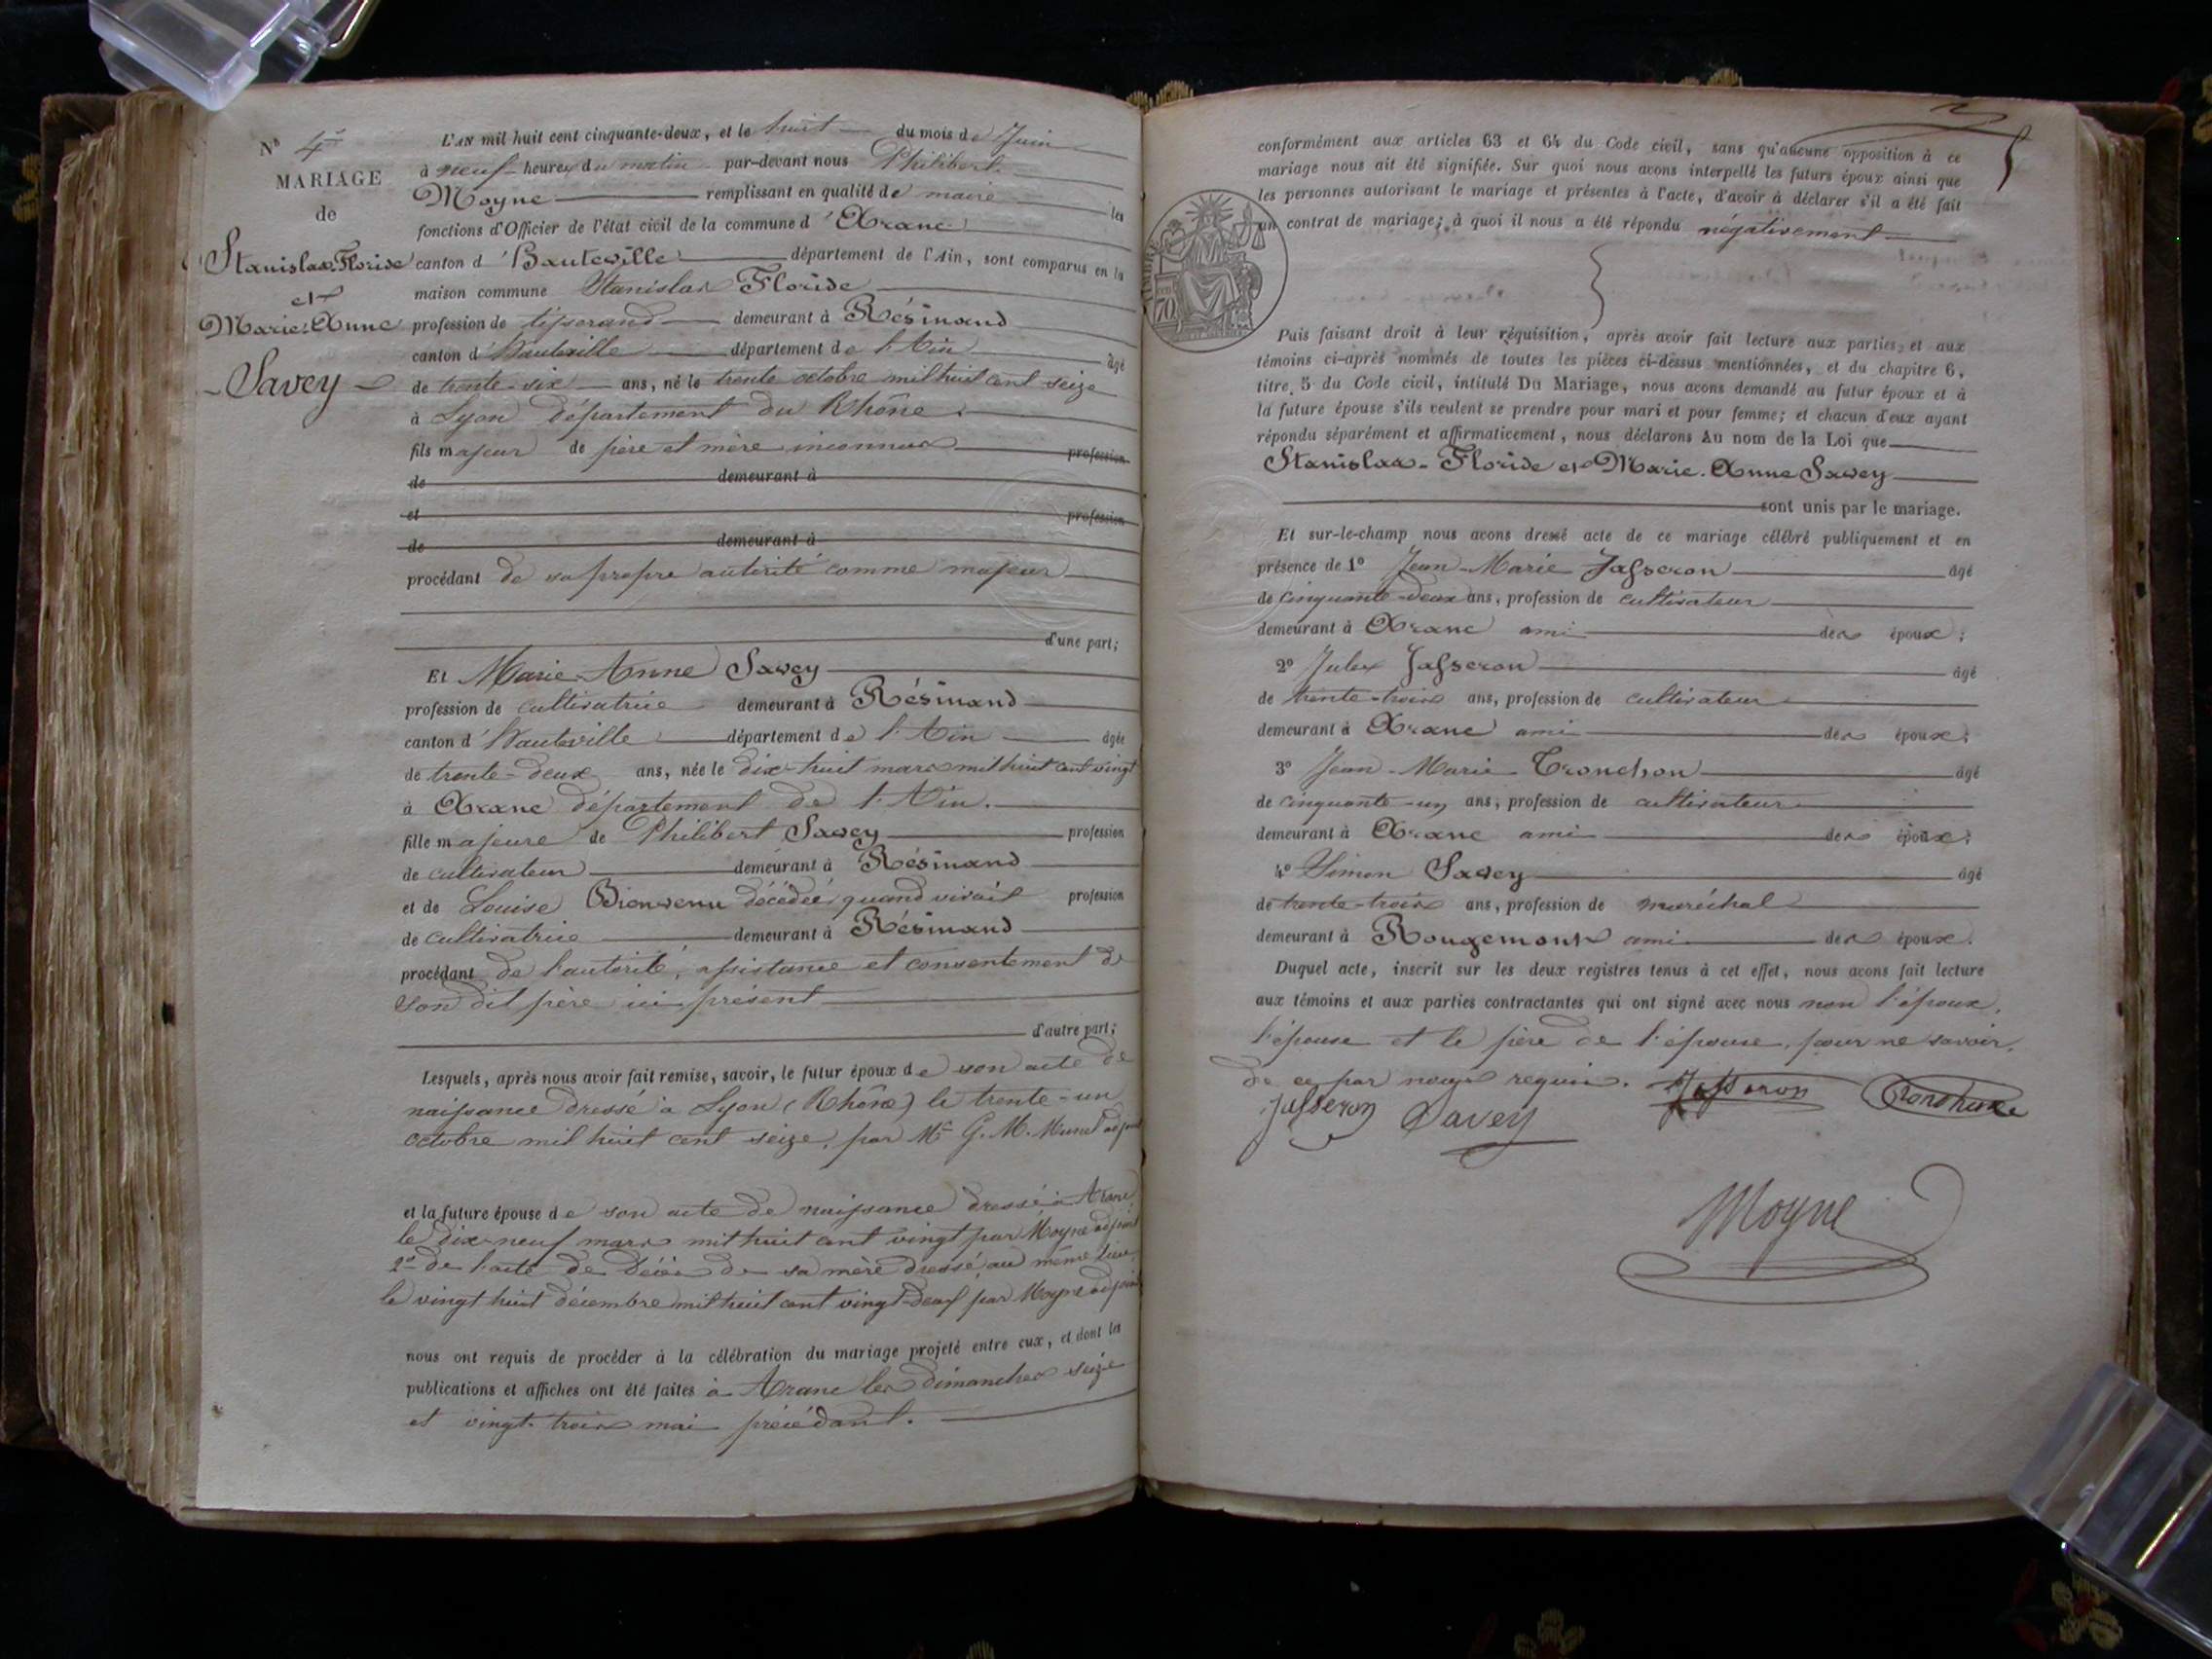 N° 4
MARIAGE
de
Stanislas Floride
et
Marie-Anne
Savey
L'AN mil huit cent cinquante-deux, et le huit du mois de Juin
à neuf heures du matin par-devant nous Philibert
Moyne remplissant en qualité de maire les
fonctions d'Officier de l'état civil de la commune d'Aranc
canton d'Hauteville département de l'Ain, sont comparus en la
maison commune Stanislas Floride
profession de tisserand demeurant à Résinand
canton d'Hauteville département de l'Ain âgé
de trente-six ans, né le trente octobre mil huit cent seize
à Lyon département du Rhône.
fils majeur de père et mère inconnus profession
de demeurant à
et profession
de demeurant à
procédant de sa propre autorité comme majeur
d'une part;
Et Marie-Anne Savey
profession de cultivatrice demeurant à Résinand
canton d'Hauteville département de l'Ain âgée
de trente-deux ans, née le dix-huit mars mil huit cent vingt
à Aranc département de l'Ain.
fille majeure de Philibert Savey profession
de cultivateur demeurant à Résinand
et de Louise Bienvenu décédée quand vivait profession
de cultivatrice demeurant à Résinand
procédant de l'autorité, assistance et consentement de
son dit père ici présent
d'autre part;
Lesquels, après nous avoir fait remise, savoir, le futur époux de son acte de
naissance dressé à Lyon (Rhône) le trente-un
octobre mil huit cent seize, par Mr G. M. adjoint
et la future épouse de son acte de naissance dressé à Aranc
le dix-neuf mars mil huit cent vingt par Moyne adjoint
2° de l'acte de décès de sa mère dressé au même lieu
le vingt huit décembre mil huit cent vingt-deux par Moyne adjoint
nous ont requis de procéder à la célébration du mariage projeté entre eux, et dont les
publications et affiches ont été faites à Aranc les dimanches seize
et vingt-trois mai précédant.
conformément aux articles 63 et 64 du Code civil, sans qu'aucune opposition à ce
mariage nous ait été signifiée. Sur quoi nous avons interpellé les futurs époux ainsi que
les personnes autorisant le mariage et présentes à l'acte, d'avoir à déclarer s'il a été fait
un contrat de mariage; à quoi il nous a été répondu négativement
TIMBRE
70
Puis faisant droit à leur réquisition, après avoir fait lecture aux parties et aux
témoins ci-après nommés de toutes les pièces ci-dessus mentionnées, et du chapitre 6,
titre 5 du Code civil, intitulé Du Mariage, nous avons demandé au futur époux et à
la future épouse s'ils veulent se prendre pour mari et pour femme; et chacun d'eux ayant
répondu séparément et affirmativement, nous déclarons Au nom de la Loi que
Stanislas-Floride et Marie-Anne Savey
sont unis par le mariage.
Et sur-le-champ nous avons dressé acte de ce mariage célébré publiquement et en
présence de 1° Jean-Marie Jasseron âgé
de cinquante-deux ans, profession de cultivateur
demeurant à Aranc ami des époux;
2° Jules Jasseron âgé
de trente-trois ans, profession de cultivateur
demeurant à Aranc ami des époux;
3° Jean-Marie Tronchon âgé
de cinquante-un ans, profession de cultivateur
demeurant à Aranc ami des époux;
4° Simon Savey âgé
de trente-trois ans, profession de maréchal
demeurant à Rougemont ami des époux.
Duquel acte, inscrit sur les deux registres tenus à cet effet, nous avons fait lecture
aux témoins et aux parties contractantes qui ont signé avec nous non l'époux,
l'épouse et le père de l'épouse, pour ne savoir,
de ce par nous requis. Jasseron
Jasseron Savey
Moyne